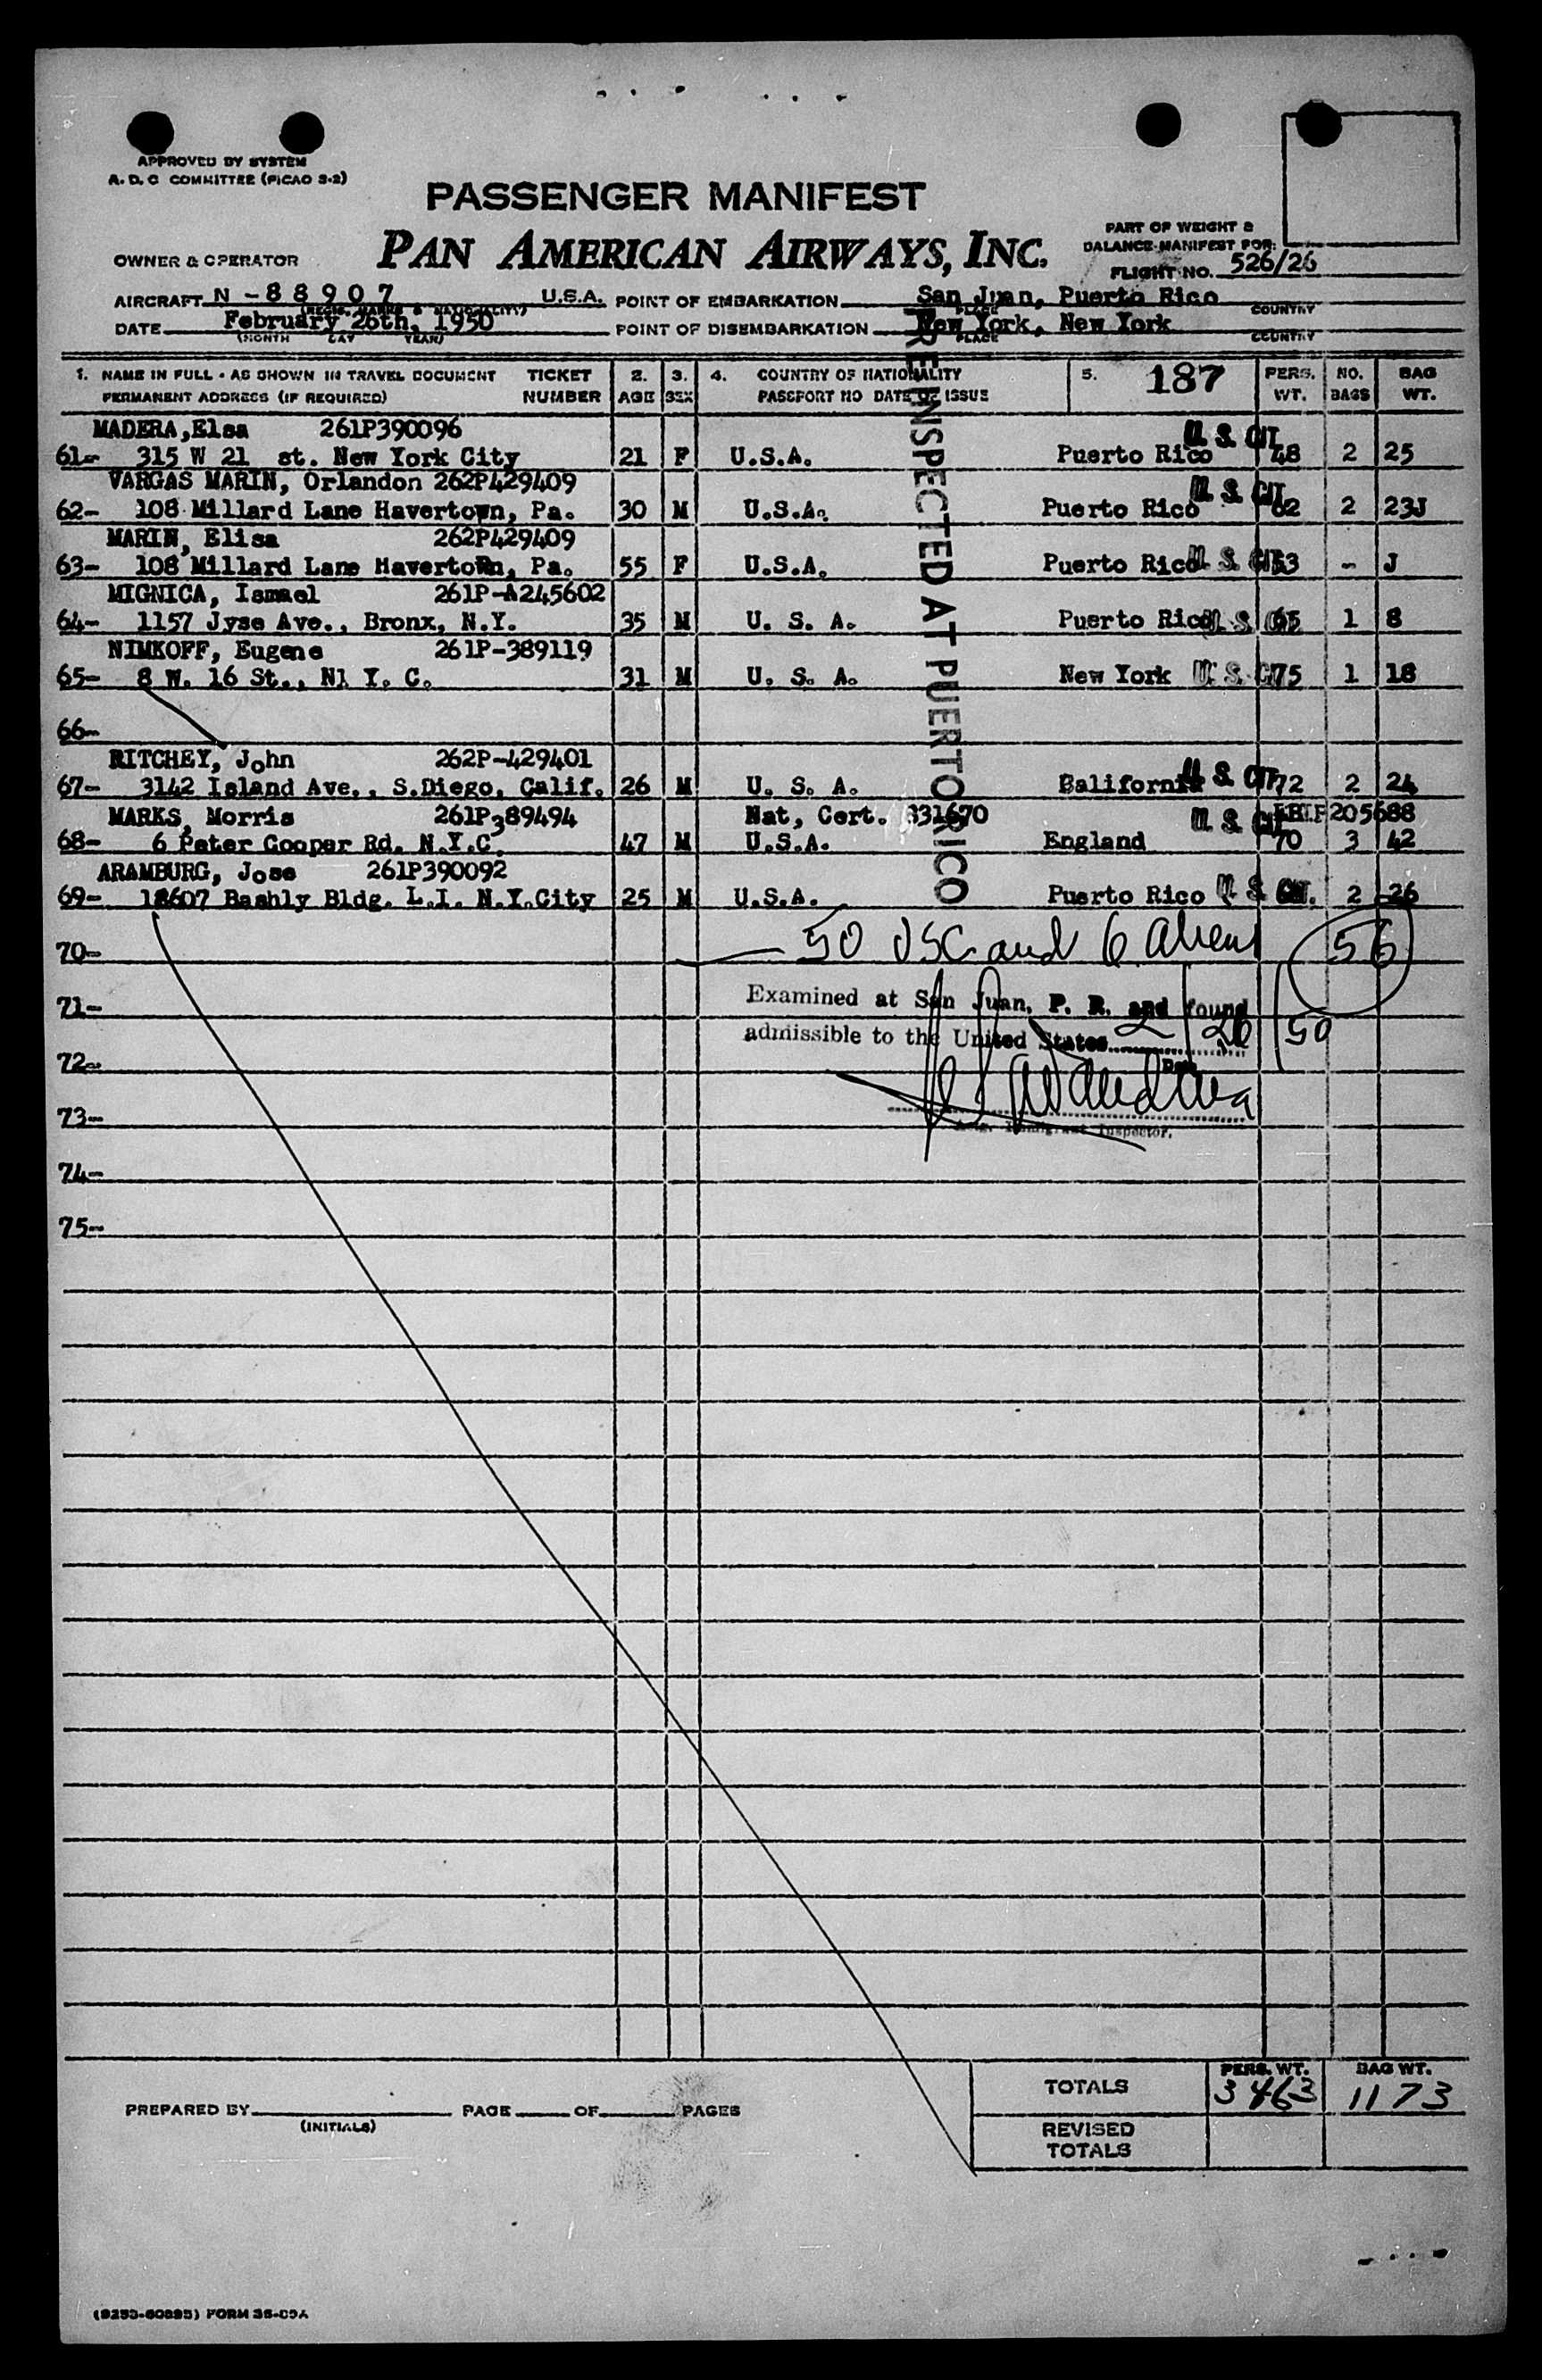 APPROVED BY SYSTEM
A. D. C COMMITTEE (PICAO S-2)
PASSENGER MANIFEST
PAN AMERICAN AIRWAYS, INC.
PART OF WEIGHT &
BALANCE MANIFEST FOR:
OWNER & OPERATOR
FLIGHT NO. 526/26
AIRCRAFT N - 8 8 9 0 7 U.S.A. POINT OF EMBARKATION San Juan, Puerto Rico
(REGIS. MARKS & NATIONALITY) PLACE COUNTRY
DATE February 26th, 1950 POINT OF DISEMBARKATION New York, New York
(MONTH DAY YEAR) PLACE COUNTRY
1. NAME IN FULL - AS SHOWN IN TRAVEL DOCUMENT TICKET 2. 3. 4. COUNTRY OF NATIONALITY 5. 187 PERS. NO. BAG
PERMANENT ADDRESS (IF REQUIRED) NUMBER AGE SEX PASSPORT NO DATE OF ISSUE WT. BAGS WT.
PREINSPECTED AT PUERTO RICO
MADERA,Elsa 261P390096 U. S. CIT.
61- 315 W 21 st. New York City 21 F U.S.A. Puerto Rico 48 2 25
VARGAS MARIN, Orlandon 262P429409 U. S. CIT.
62- 108 Millard Lane Havertown, Pa. 30 M U.S.A. Puerto Rico 62 2 23J
MARIN, Elisa 262P429409
63- 108 Millard Lane Havertown, Pa. 55 F U.S.A. Puerto Rico U. S. CIT. 53 - J
MIGNICA, Ismael 261P-A245602
64- 1157 Jyse Ave., Bronx, N.Y. 35 M U. S. A. Puerto Rico U. S. CIT. 65 1 8
NIMKOFF, Eugene 261P-389119
65- 8 W. 16 St., Nl Y. C. 31 M U. S. A. New York U. S. CIT. 75 1 18
66-
RITCHEY, John 262P-429401
67- 3142 Island Ave., S.Diego, Calif. 26 M U. S. A. Balifornia U. S. CIT. 72 2 24
MARKS, Morris 261P389494 Nat, Cert. 331670 U. S. CIT. 205688
68- 6 Peter Cooper Rd. N.Y.C. 47 M U.S.A. England 70 3 42
ARAMBURG, Jose 261P390092
69- 18607 Bashly Bldg. L.I. N.Y.City 25 M U.S.A. Puerto Rico U. S. CIT. 2 26
70- 50 USC and 6 Aliens 56
71- Examined at San Juan, P. R. and found
admissible to the United States 2/26/50
72- Date
73-
Immigrant Inspector.
74-
75-
PERS. WT. BAG WT.
TOTALS 3463 1173
PREPARED BY PAGE OF PAGES
(INITIALS)
REVISED
TOTALS
(9253-60895) FORM 36-05A